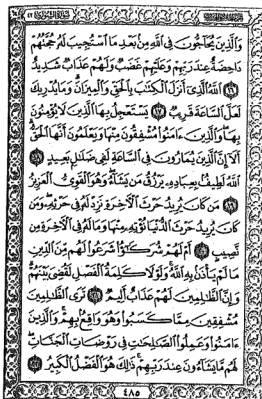 وَٱلَّذِينَ يُحَآجُّونَ فِى ٱللَّهِ مِنۢ بَعْدِ مَا ٱسْتُجِيبَ لَهُۥ حُجَّتُهُمْ
دَاحِضَةٌ عِندَ رَبِّهِمْ وَعَلَيْهِمْ غَضَبٌ وَلَهُمْ عَذَابٌ شَدِيدٌ
﴿١٦﴾ ٱللَّهُ ٱلَّذِىٓ أَنزَلَ ٱلْكِتَٰبَ بِٱلْحَقِّ وَٱلْمِيزَانَ وَمَا يُدْرِيكَ
لَعَلَّ ٱلسَّاعَةَ قَرِيبٌ ﴿١٧﴾ يَسْتَعْجِلُ بِهَا ٱلَّذِينَ لَا يُؤْمِنُونَ
بِهَا وَٱلَّذِينَ ءَامَنُوا۟ مُشْفِقُونَ مِنْهَا وَيَعْلَمُونَ أَنَّهَا ٱلْحَقُّ
أَلَآ إِنَّ ٱلَّذِينَ يُمَارُونَ فِى ٱلسَّاعَةِ لَفِى ضَلَٰلٍۭ بَعِيدٍ ﴿١٨﴾
ٱللَّهُ لَطِيفٌۢ بِعِبَادِهِۦ يَرْزُقُ مَن يَشَآءُ وَهُوَ ٱلْقَوِىُّ ٱلْعَزِيزُ
﴿١٩﴾ مَن كَانَ يُرِيدُ حَرْثَ ٱلْءَاخِرَةِ نَزِدْ لَهُۥ فِى حَرْثِهِۦ وَمَن
كَانَ يُرِيدُ حَرْثَ ٱلدُّنْيَا نُؤْتِهِۦ مِنْهَا وَمَا لَهُۥ فِى ٱلْءَاخِرَةِ مِن
نَّصِيبٍ ﴿٢٠﴾ أَمْ لَهُمْ شُرَكَٰٓؤُا۟ شَرَعُوا۟ لَهُم مِّنَ ٱلدِّينِ
مَا لَمْ يَأْذَنۢ بِهِ ٱللَّهُ وَلَوْلَا كَلِمَةُ ٱلْفَصْلِ لَقُضِىَ بَيْنَهُمْ
وَإِنَّ ٱلظَّٰلِمِينَ لَهُمْ عَذَابٌ أَلِيمٌ ﴿٢١﴾ تَرَى ٱلظَّٰلِمِينَ
مُشْفِقِينَ مِمَّا كَسَبُوا۟ وَهُوَ وَاقِعٌۢ بِهِمْ وَٱلَّذِينَ
ءَامَنُوا۟ وَعَمِلُوا۟ ٱلصَّٰلِحَٰتِ فِى رَوْضَاتِ ٱلْجَنَّاتِ
لَهُم مَّا يَشَآءُونَ عِندَ رَبِّهِمْ ذَٰلِكَ هُوَ ٱلْفَضْلُ ٱلْكَبِيرُ ﴿٢٢﴾
٤٨٥